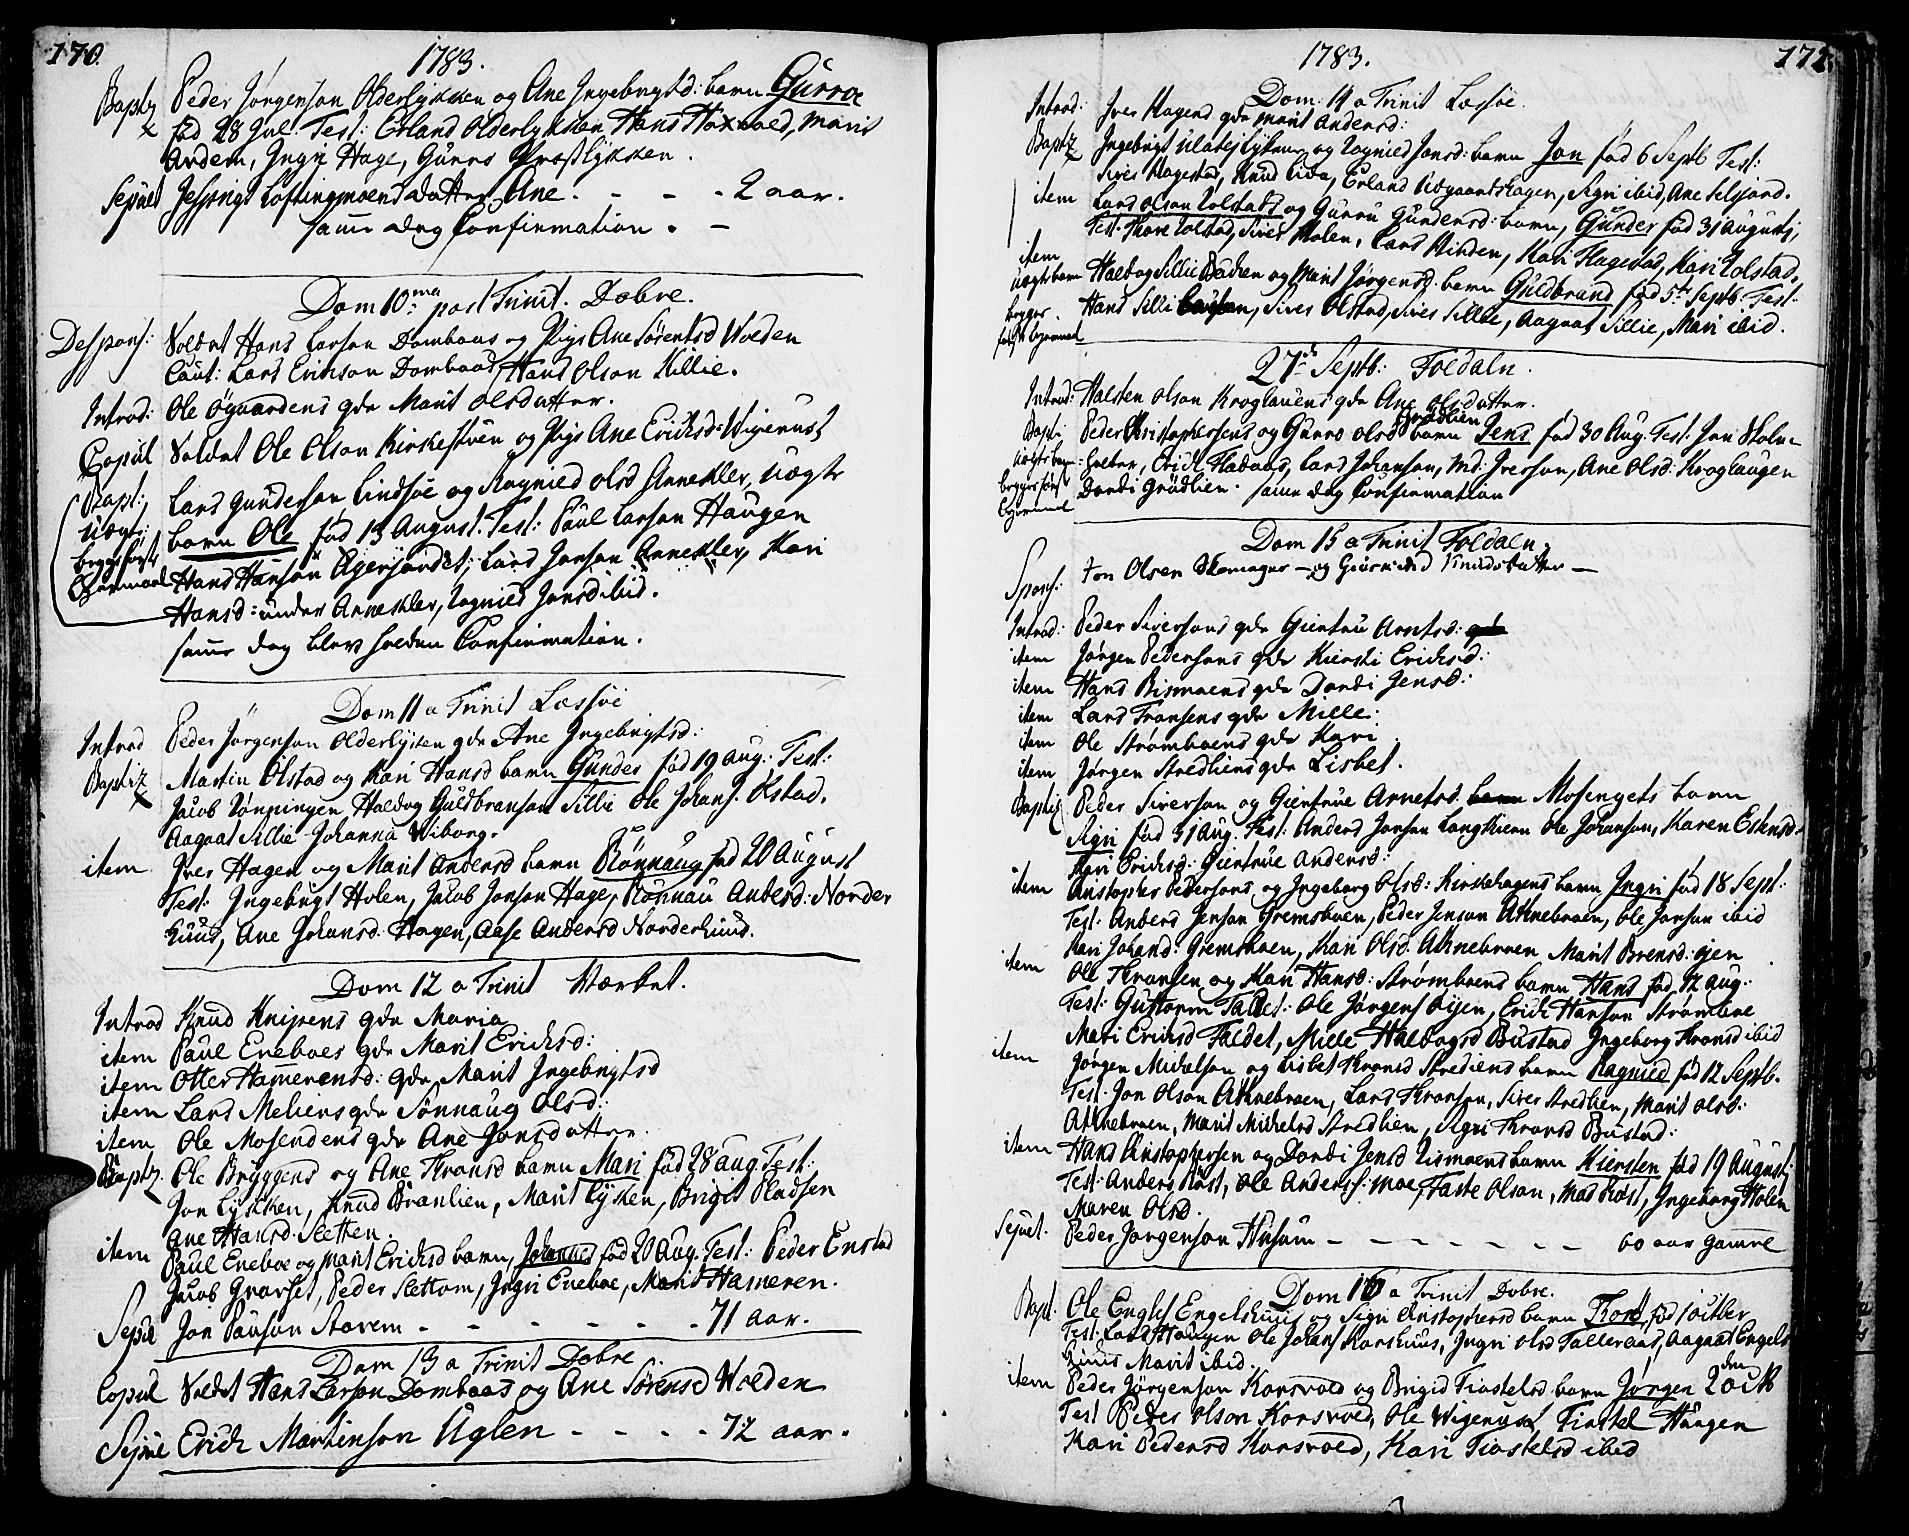 170.
1783.
Baptz Peder Jørgenson Olderlykken og Ane Ingebrigtsd: barn Gurroe
fød 28 Jul. Test: Erland Olderlykken, Hans Haxvold, Marit
Ardem, Ingri Hage, Gurroe
Sepult datter Ane - - - 2 aar.
samme dag Confirmation -
Dom 10ma post Trinit. Dobre.
Despons: Soldat Hans Larson Dombaas og Pige Ane Sørensd Wolden
Caut: Lars Erikson Dombaas, Hans Olson Killie.
Introd: Ole Øgaardens qde Marit Olsdatter.
Copul Soldat Ole Olson Kirkestuen og Pige Ane Ericksd: Wigerust
Bapt: Lars Gunderson Lindsøe og Ragnied Olsd Annekler, uægte
uægt: barn Ole fød 13 August. Test: Paul Larson Haugen
begges første Hans Hanson Agerjordet, Lars Jonson Annekler, Kari
Leiermaal Hansd: under Annekler, Ragnied Jonsd ibid.
samme dag blev holden Confirmation.
Dom 11 a Trinit Lessøe
Introd Peder Jørgenson Olderlykken qde Ane Ingebrigtsd:
Baptiz Martin Olstad og Kari Hansd barn Gunder fød 19 Aug: Test:
Jacob Rønningen Haldog Guldbranson Sillie Ole Johans: Olstad,
Aagaat Sillie Johanna Wiborg.
item Iver Hagen og Marit Andersd barn Rønnaug fød 20 August
Test: Ingebrigt Holen, Jacob Jonson Hage, Rønnau Andersd: Norder
huus, Ane Johansd: Hagen, Aase Andersd Norderhuus.
Dom 12 a Trinit Værket.
Introd Knud Knipens qde Maria
item Paul Eneboes qde Marit Ericksd:
item Otter Hamerensd: qde Marit Ingebrigtsd
item Lars Meliens qde Sønnaug Olsd:
item Ole Mosendens qde Ane Jonsdatter.
Baptz Ole Bryggens og Ane Thronsd barn Mari fød 28 aug. Test:
Jon Lykken, Knud Brænlien, Marit Lyken, Brigit Pladsen
Ane Hansd: Sletten.
item Paul Eneboe og Marit Ericksd barn, Johannes fød 20 Aug. Test: Peder Enstad
Jacob Gravset, Peder Slettom, Ingri Eneboe, Marit Hameren.
Sepul Jon Paulson Storem - - - - - 71 aar.
Dom 13 a Trinit Dobre
Copul Soldat Hans Larson Dombaas og Ane Sørensd Wolden
Sepul Erich Martinson Uglen - - - - 72 aar.
171.
1783.
Dom: 14 a Trinit Lessøe.
Introd: Iver Hagens qde Marit Andersd:
Baptz Ingebrigt og Ragnied Jonsd: barn Jon fød 6 Septb Test:
Siver Hagestad, Knud Lien, Erland Øvgaardshagen, Sigri ibid, Ane Selsjord.
item Lars Olson Tolstad og Gurru Gundersd: barn, Gunder fød 31 Augustj,
Test. Thore Tolstad, Siver Holen, Lars Kirken, Kari Hagestad, Kari Tolstad.
item
uægte barn Haldog Sillie og Marit Jørgensd. barn Guldbrand fød 5te Septb. Test:
begges Hans Sillie, Siver Olstad, Siver Sillie, Aagaat Sillie, Mari ibid.
første Leiermaal
27de Septb: Foldaln.
Introd: Halsten Olson Kroglauens qde Ane Olsdatter.
Grødlien
Bapti Peder Christophersens og Gurro Olsd barn Jens fød 30 Aug. Test: Jon
uægte barn Erick Lars Johanson, Md: Iverson, Ane Olsd: Kroglaugen
begges første Dordi Grødlien. samme dag Confirmation
Leiermaal
Dom 15 a Trinit Foldaln.
Spons: Jon Olsen Skomager - og Giertrud Knudsdatter -
Introd: Peder Siversons qde Giertrue Arntsd:
item Jørgen Pedersons qde Kiersti Ericksd:
item Hans Rismoens qde Dordi Jensd:
item Lars Tronsens qde Mille:
item Ole Strømboens qde Kari
item Jørgen Stredliens qde Lisbet.
Baptiz Peder Siverson og Giertrue Arnetsd. Mosengets barn
Sigri fød 31 Aug. Test: Anders Jonson Langthiern Ole Johanson, Karen Eskensd.
Kari Ericksd: Giertrue Andersd:
item Christopher Pedersons og Ingeborg Olsd: Kirkehagens barn Ingri fød 18 Sept:
Test: Anders Jenson Gremsboen, Peder Jenson Aknebroen, Ole Jonson ibid
Kari Johansd: Gremsboen, Kari Olsd: Aknebroen Marit Brensd: igen
item Ole Thronsen og Kari Hansd: Strømboens barn Hans fød 17 Aug:
Test: Guttorm Faldet: Ole Jørgens Øyen, Erick Hanson Strømboe
Mari Ericksd Faldet, Mille Haldogsd Bustad Ingeborg Thronsd ibid
item Jørgen Mickelson og Lisbet Thronsd Strediens barn Ragnied fød 12 Septb.
Test: Jon Olson Aknebroen, Lars Thronson, Siver Stredlien, Marit Olsd:
Aknebroen, Marit Mickelsd Stredlien, Sigri Thronsd Bustad:
item Hans Christophersen og Dordi Jensd Rismoens barn Kiersten fød 19 Augustj
Test: Anders Røst, Ole Anders: moe, Faste Olson, Mad Røst, Ingeborg Holen
Maren Olsd.
Sepult. Peder Jørgenson Husum - - - - - - - 60 aar gamle
Dom 16 a Trinit Dobre.
Bapt. Ole Engles Engelshuus og Sigri Christophersd barn Thord fød 1 octber
Test: Lars Haugen Ole Johans Korshuus, Ingri Olsd Talleraas, Aagaat Engels
huus Marit ibid.
item Peder Jørgenson Korsvold og Brigid Tiostelsd. barn Jørgen 2den octb
Test Peder Olson Korsvold, Ole Wigerust Tiostel Haugen
Kari Pedersd Korsvold, Kari Tiostelsd ibid